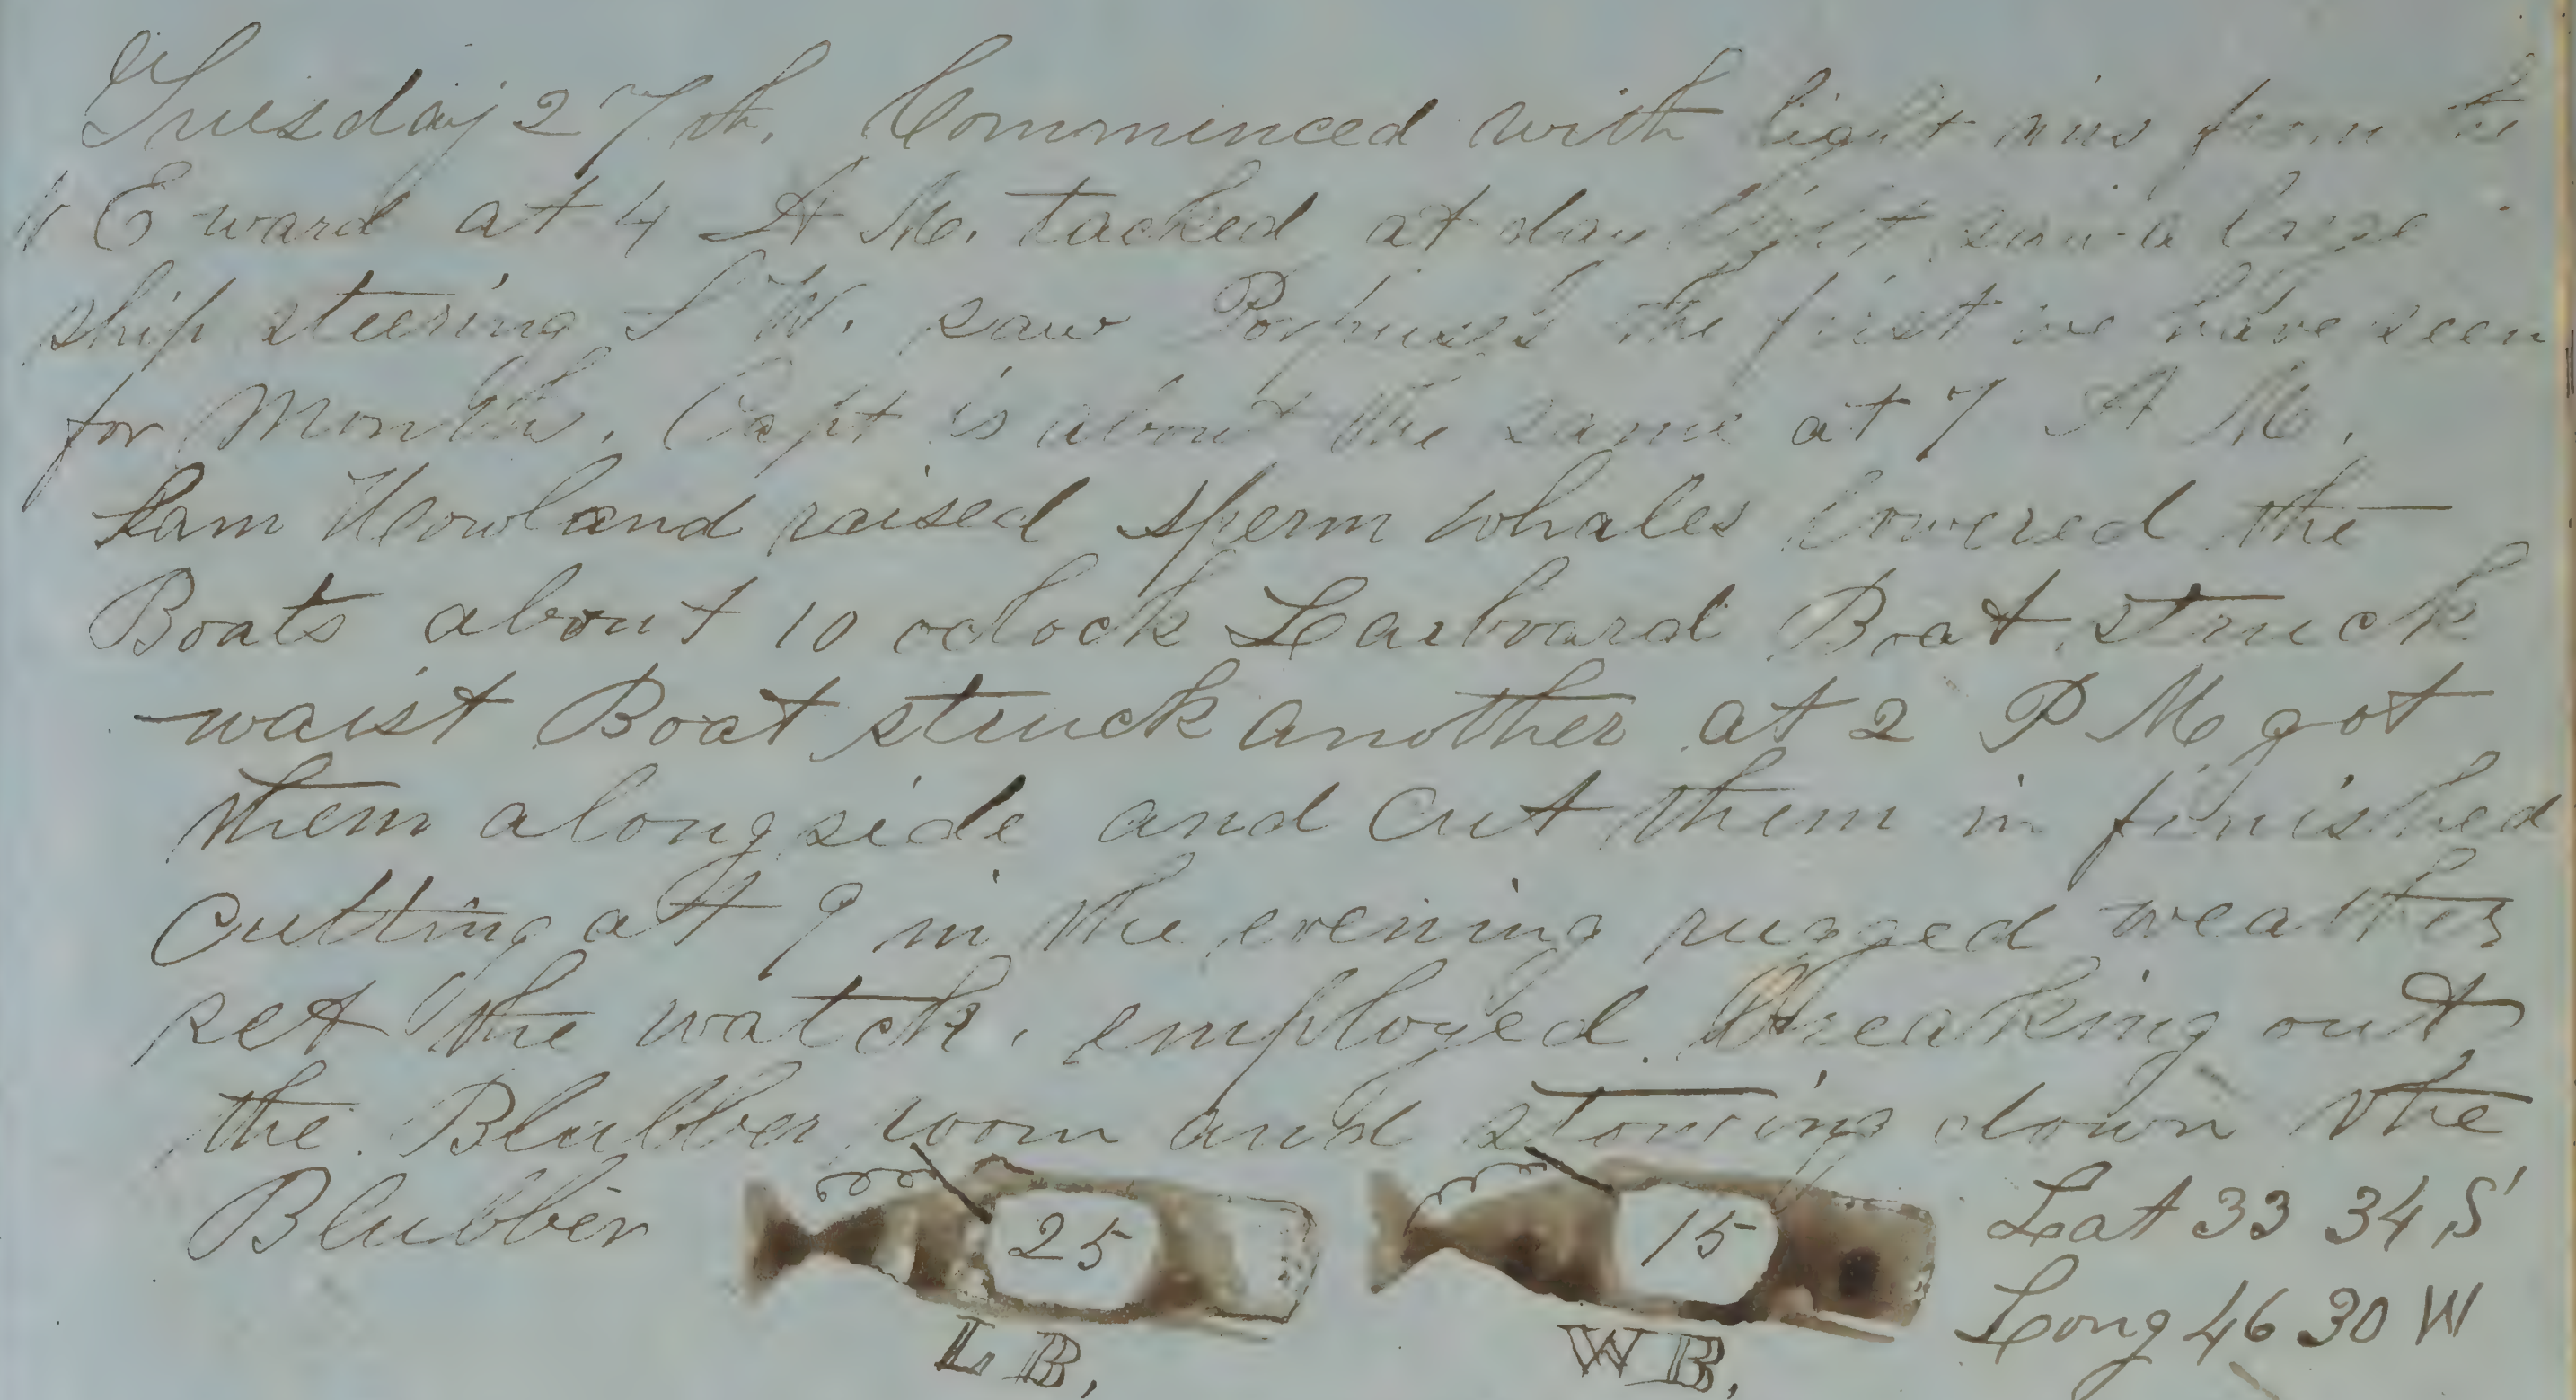 Tuesday 27th. Commenced with light airs from the
N E ward at 4 A M. tacked at day light saw a large
ship steering S W. saw the first we have seen
for Months. Capt is about the same at 7 A M.
Sam Howland raised sperm whales lowered the
Boats about 10 oclock Larboard Boat struck
waist Boat struck another at 2 P M got
them alongside and cut them in finished
cutting at 9 in the evening rugged weather
set the watch. employed breaking out
the Blubber room and stowing down the
Blubber
25
15
Lat 33 34 S
Long 46 30 W
L B.
W B.